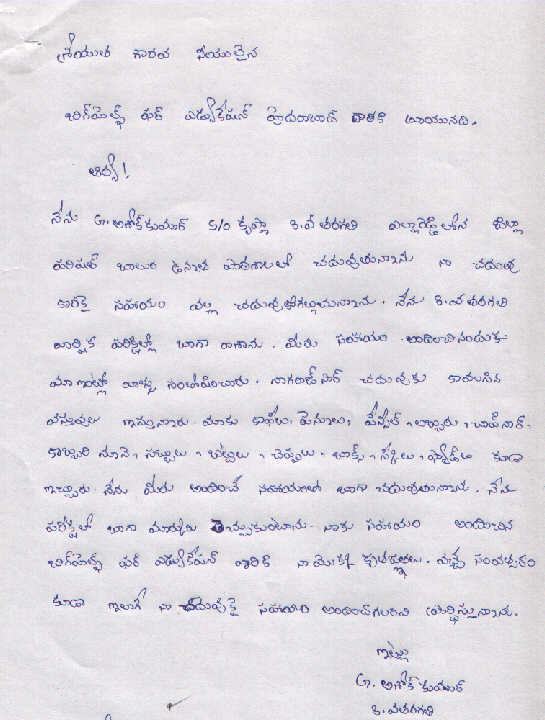 శ్రీయుత గౌరవ నీయులైన
బిగ్‌హెల్ప్ ఫర్ ఎడ్యుకేషన్ హైదరాబాద్ వారికి వ్రాయునది.
ఆర్యా!
నేను G. అశోక్ కుమార్ S/o కృష్ణా 8.వ తరగతి ఎల్లారెడ్డిలోని జిల్లా
పరిషత్ బాలుర ఉన్నత పాఠశాలలో చదువుతున్నాను నా చదువు
కొరకై సహాయం వల్ల చదువుకోగల్గుతున్నాను. నేను 8.వ తరగతి
వార్షిక పరీక్షల్లో బాగా రాశాను. మీరు సహాయం అందించినందుకు
మా ఇంట్లో వాళ్ళు సంతోషించారు. నాగరాజ్ సార్ చదువుకు కావలసిన
వస్తువులు ఇస్తున్నారు మాకు కాపీలు, పెన్నులు, పెన్సిల్, లబ్బరు, చాప్‌నార్.
కొబ్బరి నూనె, సబ్బులు, బట్టలు, చెప్పులు, బాక్స్, స్కేలు, ప్యాడ్‌లు కూడా
ఇచ్చారు నేను మీరు అందించే సహాయంతో బాగా చదువుతున్నాను. నేను
పరీక్షలో బాగా మార్కులు తెచ్చుకుంటాను. నాకు సహాయం అందించిన
బిగ్‌హెల్ప్ ఫర్ ఎడ్యుకేషన్ వారికి నా యొక్క కృతజ్ఞతలు. వచ్చే సంవత్సరం
కూడా ఇలాగే నా చదువుకై సహాయం అందించగలరని ప్రార్థిస్తున్నాను.
ఇట్లు
G. అశోక్ కుమార్
8.వ తరగతి